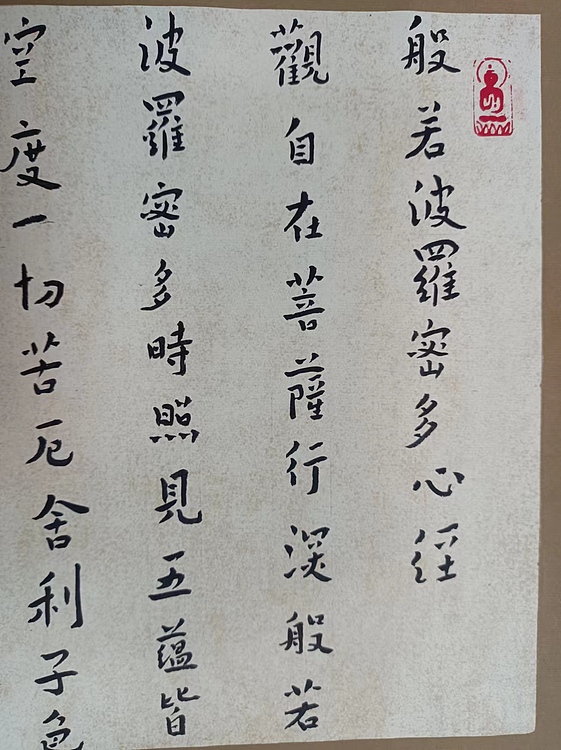 般若波羅密多心經
觀自在菩薩行深般若
波羅密多時照見五蘊皆
空度一切苦厄舍利子色